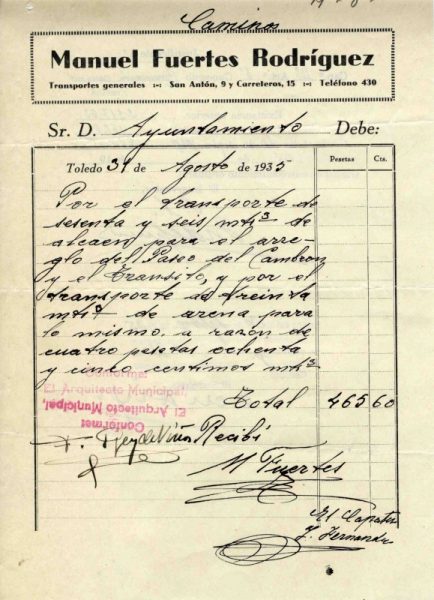 Caminos
Manuel Fuertes Rodríguez
Transportes generales San Antón, 9 y Carreteros, 15 Teléfono 430
Sr. D. Ayuntamiento Debe:
Toledo 31 de Agosto de 1935 Pesetas Cts.
Por el transporte de
sesenta y seis mts³ de
para el arre-
glo del Paseo del Cambron
y el Transito, y por el
transporte de treinta
mts³ de arena para
lo mismo a razón de
cuatro pesetas ochenta
y cinco centimos mts³
Conforme:
El Arquitecto Municipal,
El Arquitecto Municipal,
Conforme:
Total 465 60
Recibí
M Fuertes
El Capataz
F. Fernandez